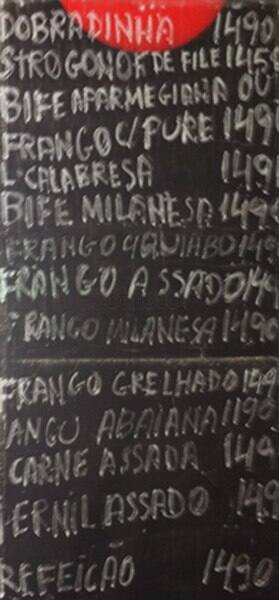 DOBRADINHA 1490
STROGONOF DE FILE 145
BIFE APARMEGIANA OU
FRANGO C/ PURE 149
L CALABRESA 149
BIFE MILANESA 149
FRANGO C/QUIABO 149
FRANGO ASSADO 14
FRANGO MILANESA 1490
FRANGO GRELHADO 149
ANGU ABAIANA 1190
CARNE ASSADA 149
PERNIL ASSADO 149
REFEICAO 1490